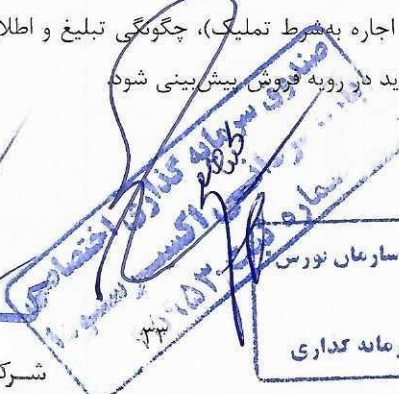 اجاره به‌شرط تملیک)، چگونگی تبلیغ و اطلا
ید در رویه فروش پیش‌بینی شود.
صندوق سرمایه گذاری اختصاصی
شماره ثبت
سازمان بورس
رمایه گذاری
۳۳
شرک